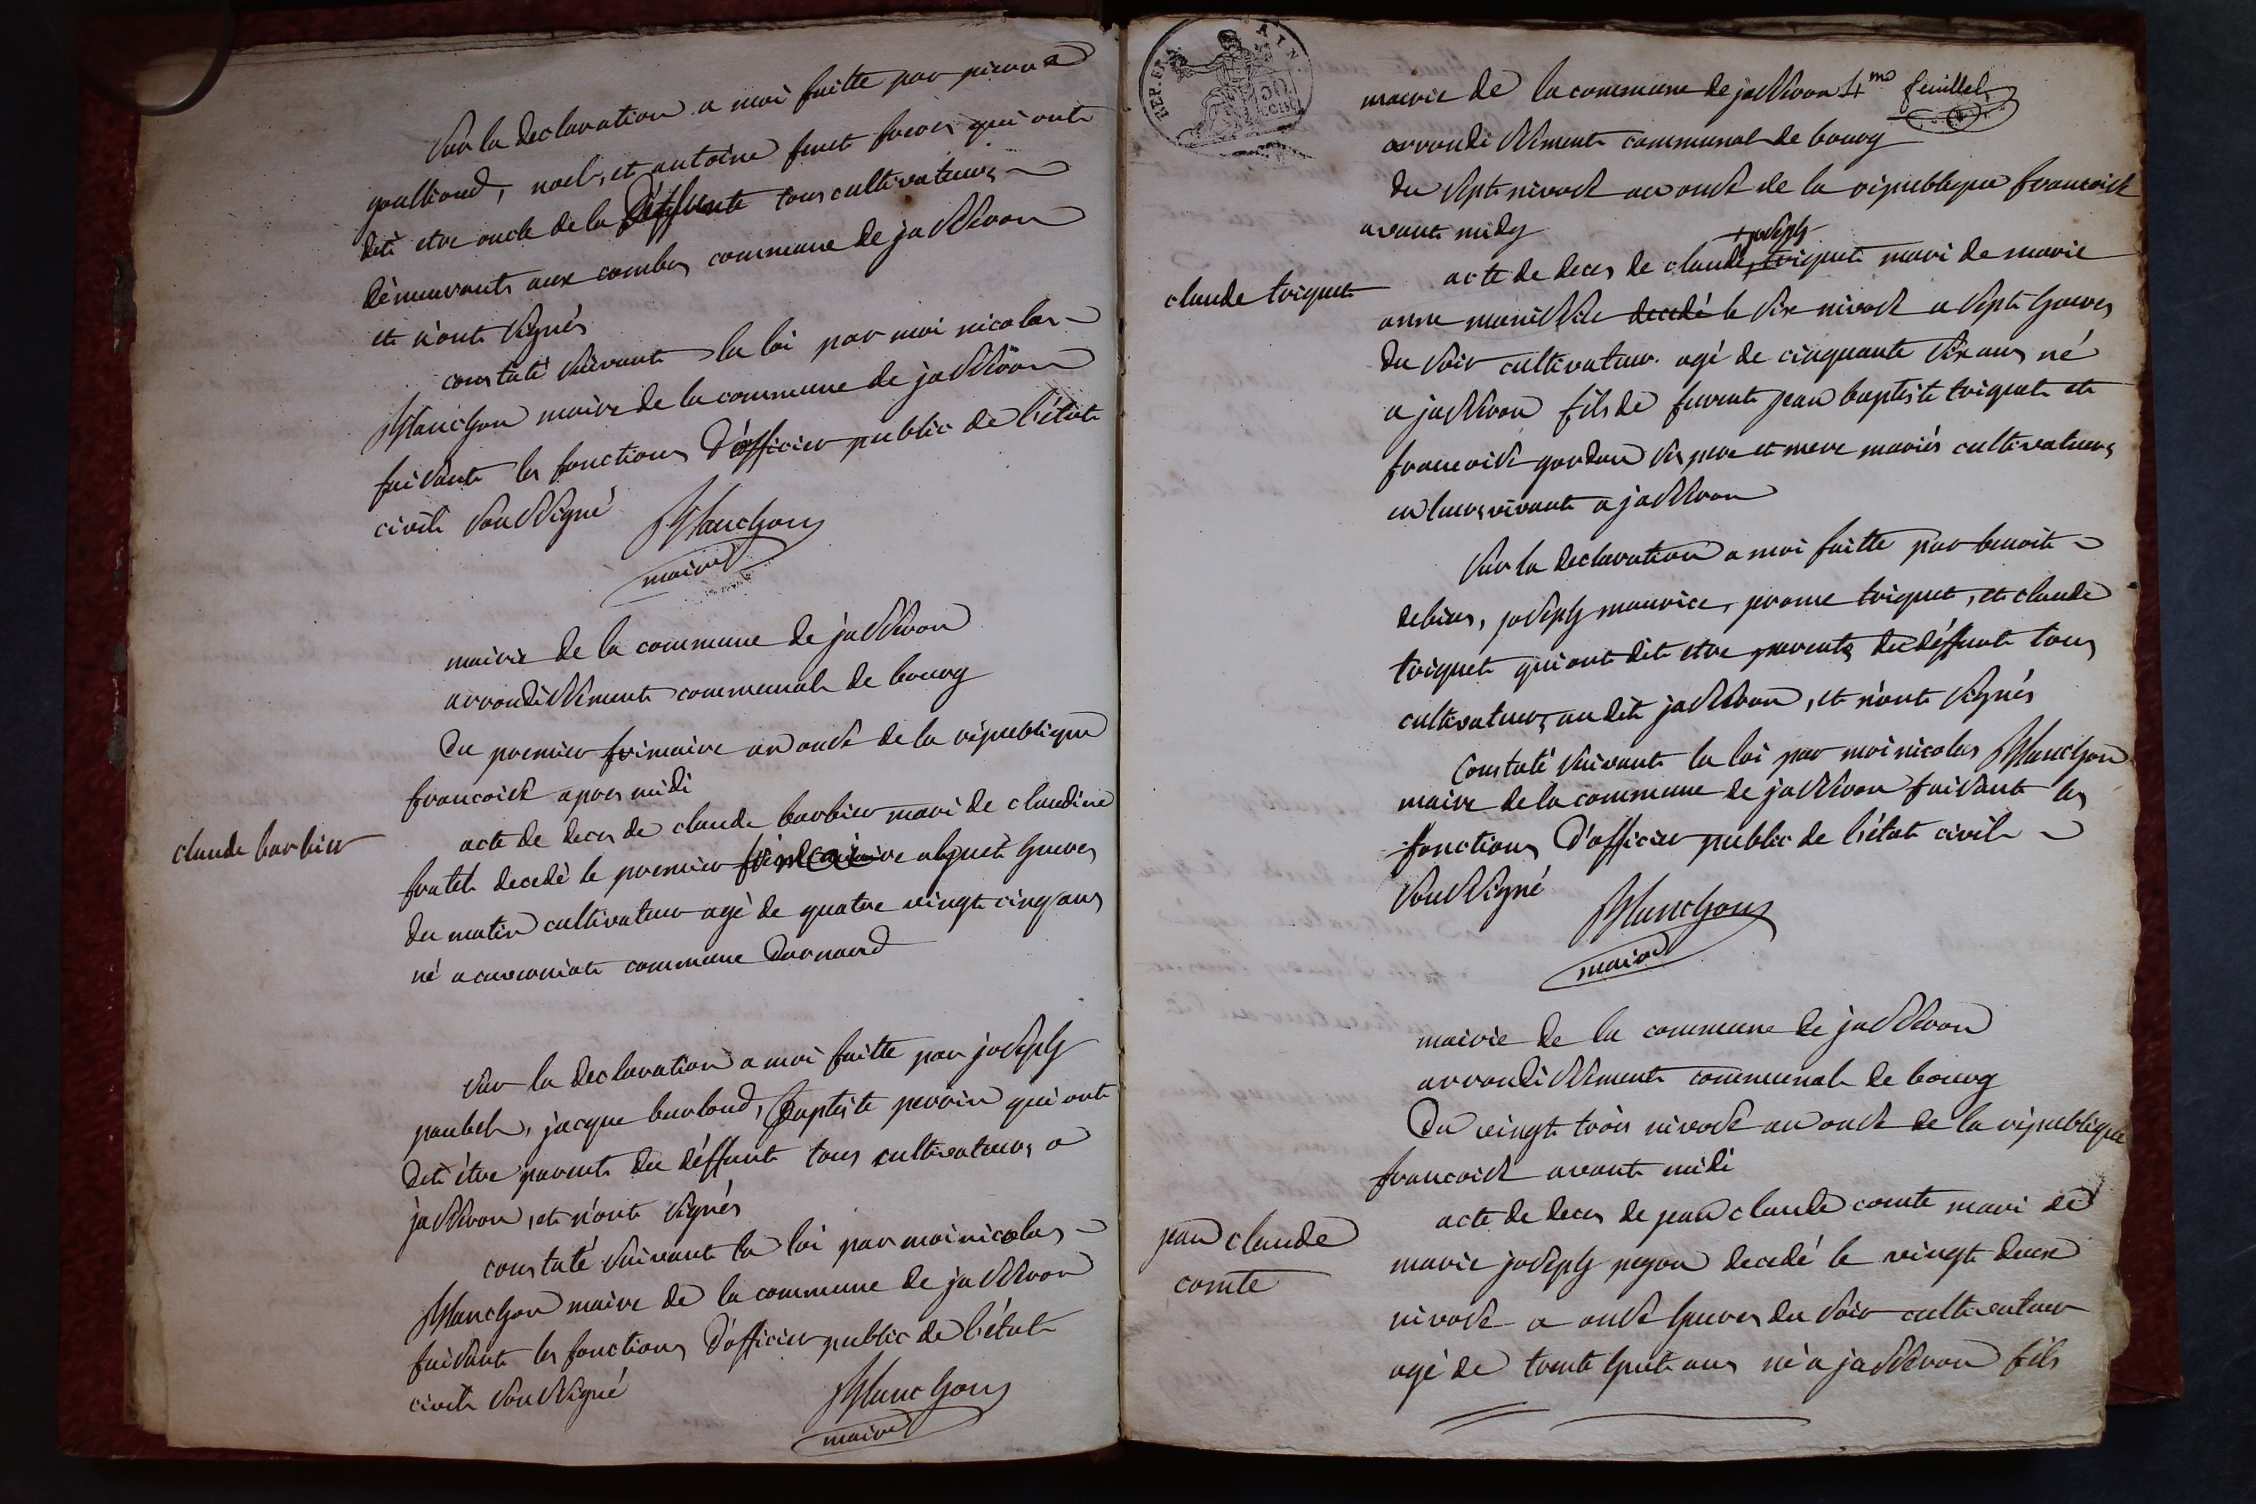 Sur la declaration a moi faitte par pierre
goullioud, noel, et antoine feuet freres qui ont
dit etre oncle de la déffunte tous cultivateurs
démeurants aux combes commune de jasseron
et n'ont signés
constaté suivant la loi par moi nicolas
Blanchon maire de la commune de jasseron
faisant les fonctions d'officier public de l'état
civil soussigné
Blanchon
maire
mairie de la commune de jasseron
arrondissement communal de bourg
Du premier frimaire an onse de la république
francoise apres midi
claude barbier
acte de deces de claude barbier mari de claudine
frutel decedé le premier frimaire a huit heures
du matin cultivateur agé de quatre vingt cinq ans
né a cuvoniat commune darnand
Sur la declaration a moi faitte par joseph
paubel, jacque burloud, baptiste perrin qui ont
dit être parents du déffunt tous cultivateurs a
jasseron, et n'ont signés
constaté suivant la loi par moi nicolas
Blanchon maire de la commune de jasseron
faisant les fonctions d'officier public de l'état
civil soussigné
Blanchon
maire
REP. FRA. AIN.
mairie de la commune de jasseron 4me feuillet
arrondissement communal de bourg
du sept nivose an onse de la république francoise
avant midy
claude triquet
acte de deces de claude joseph triquet mari de marie
anne monissire decedé le six nivose a sept heures
du soir cultivateur agé de cinquante six ans né
a jasseron fils de furent jean baptiste triquet et
francoise gordon ses pere et mere mariés cultivateurs
en leurs vivants a jasseron
Sur la declaration a moi faitte par benoit
debias, joseph maurice, jerome triquet, et claude
triquet qui ont dit etre parents du déffunt tous
cultivateurs audit jasseron, et n'ont signés
Constaté suivant la loi par moi nicolas Blanchon
maire de la commune de jasseron faisant les
fonctions d'officier public de l'état civil
soussigné
Blanchon
maire
mairie de la commune de jasseron
arrondissement communal de bourg
Du vingt trois nivose an onse de la république
francoise avant midi
jean claude
comte
acte de deces de jean claude comte mari de
marie joseph pegon decedé le vingt deux
nivose a onse heures du soir cultivateur
agé de trente huit ans né a jasseron fils